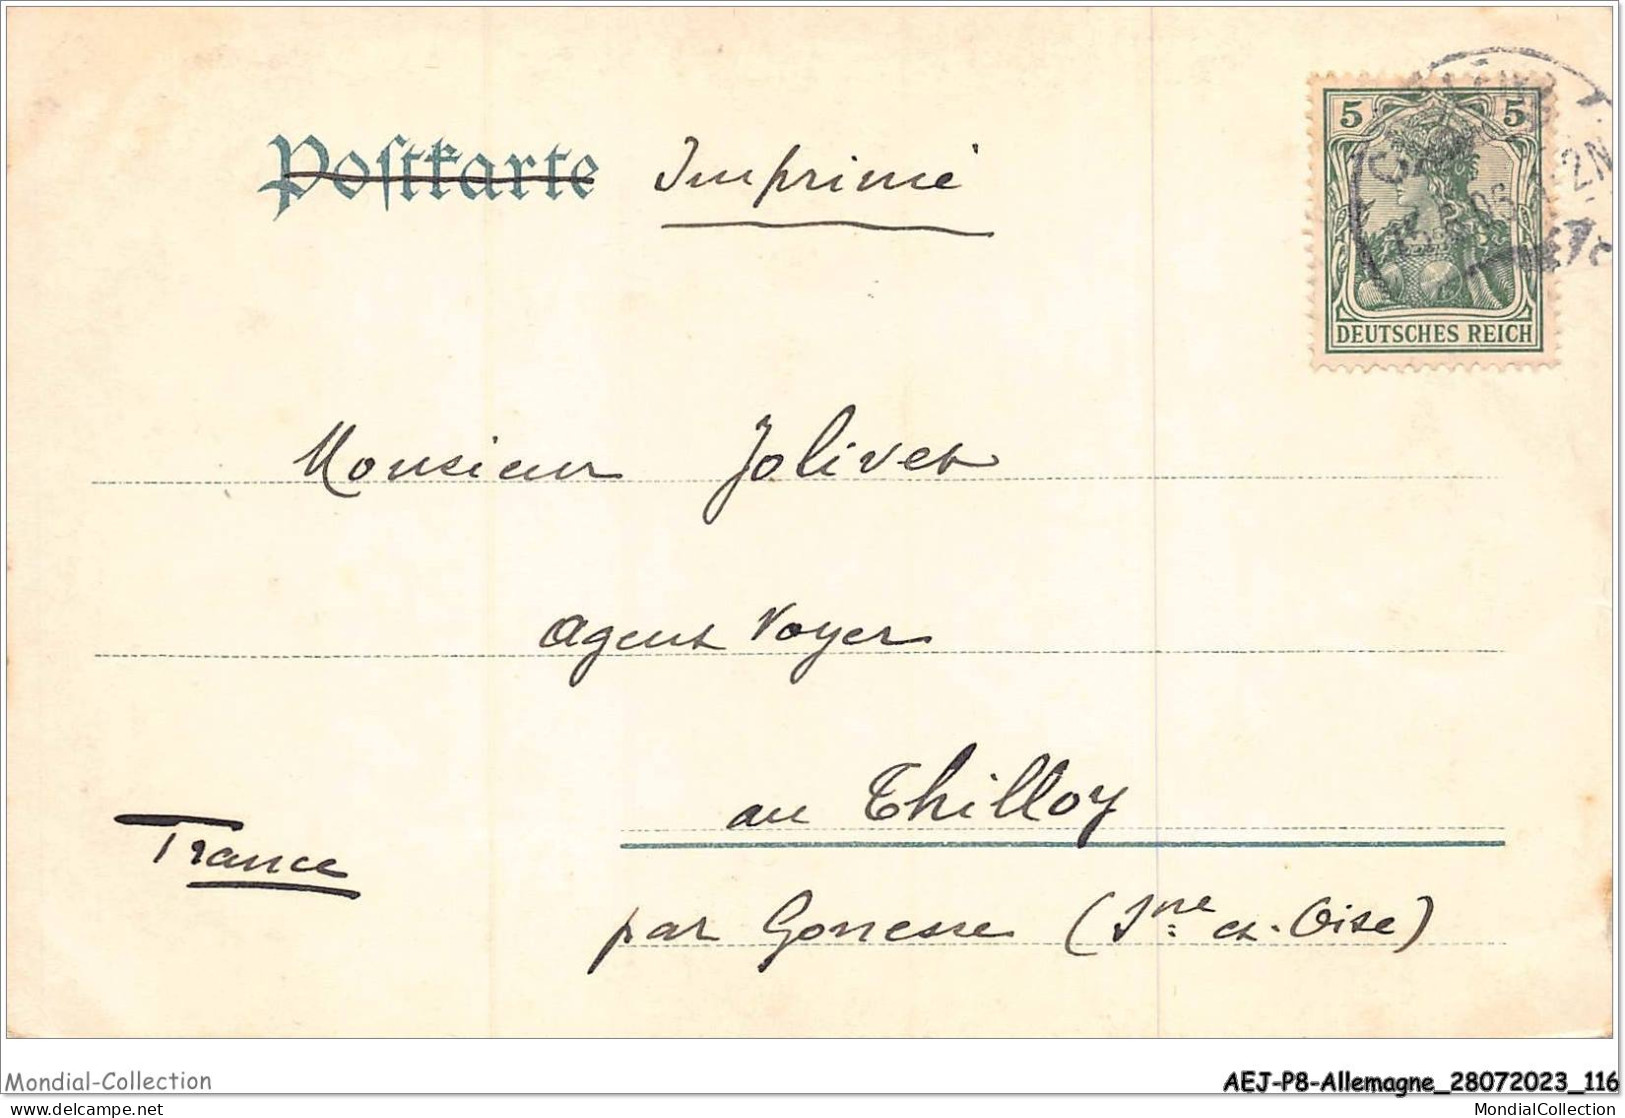 Postkarte Imprimé
5 5
DEUTSCHES REICH
Monsieur Jolivet
agent Voyer
au Thilloy
France
par Gonesse (Sne et-Oise)
Mondial-Collection
AEJ-P8-Allemagne_28072023_116
delcampe.net
MondialCollection